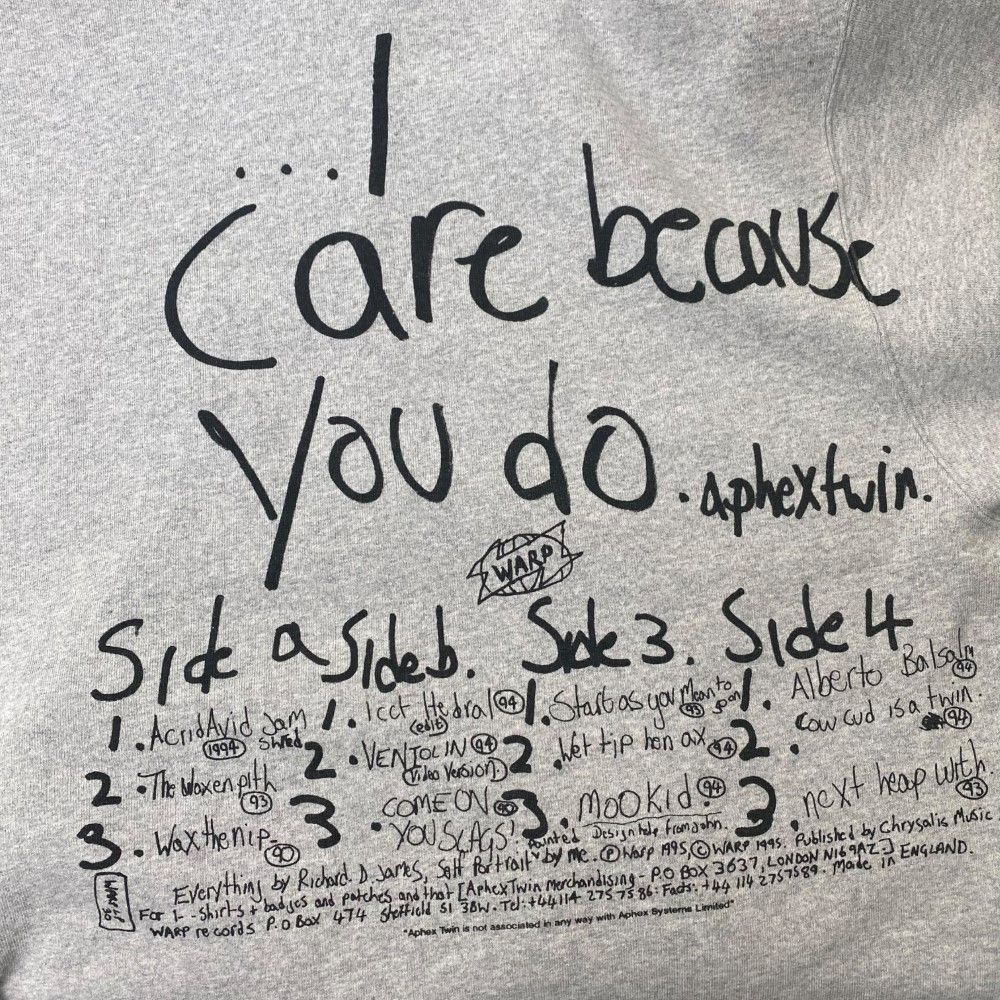 ...I
Care because
you do. aphextwin.
WARP
Side a
1. Acrid Avid Jam
Shred 1994
2. The Waxen pith 93
3. Wax the nip 90
Side b.
1. Icct Hedral 94
(edit)
2. VENTOLIN 94
(Video Version)
3. COME ON 90
YOU SLAGS!
Side 3.
1. Start as you Mean to
go on 93
2. Wet tip hen ax 94
3. Mookid. 94
Side 4
1. Alberto Balsalm 94
2. Cow cud is a twin.
94
3. next heap with. 93
Design help from John.
Everything by Richard. D. James, Self Portrait painted by me. Ⓟ Warp 1995, © WARP 1995. Published by Chrysalis Music.
For T-Shirts + badges and patches and that [Aphex Twin Merchandising - P.O BOX 3637, LONDON N16 9AZ.]
WARP records P.O Box 474 Sheffield S1 3BW. Tel: +44 114 275 7586: Facts: +44 114 2757589. Made in ENGLAND.
"Aphex Twin is not associated in any way with Aphex Systems Limited"